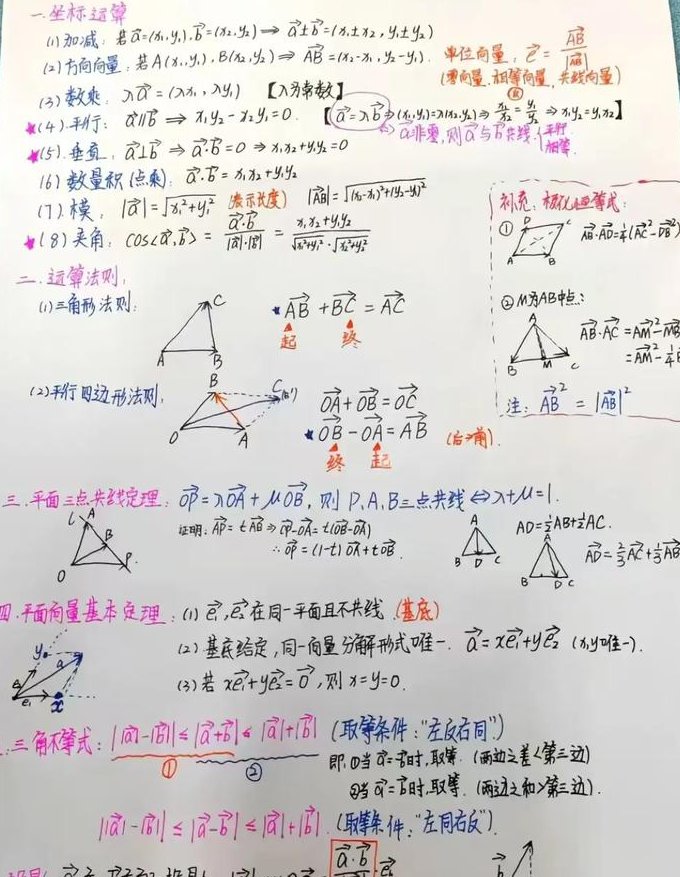 一.坐标运算
(1)加减:若a⃗=(x₁,y₁),b⃗=(x₂,y₂)⇒a⃗±b⃗=(x₁±x₂,y₁±y₂)
(2)方向向量:若A(x₁,y₁),B(x₂,y₂)⇒AB⃗=(x₂-x₁,y₂-y₁). 单位向量:e⃗=AB⃗/|AB⃗|
(零向量,相等向量,共线向量)
(3)数乘:λa⃗=(λx₁,λy₁) 【λ为常数】
★(4).平行: a⃗∥b⃗⇒x₁y₂-x₂y₁=0. 【a⃗=λb⃗⇒(x₁,y₁)=λ(x₂,y₂)⇒x₁/x₂=y₁/y₂⇒x₁y₂=y₁x₂】
⇔a⃗非零,则a⃗与b⃗共线.{平行 相等
★(5).垂直:a⃗⊥b⃗⇒a⃗·b⃗=0⇒x₁x₂+y₁y₂=0
(6)数量积(点乘):a⃗·b⃗=x₁x₂+y₁y₂
(7).模:|a⃗|=√(x₁²+y₁²) (表示长度) |AB⃗|=√((x₂-x₁)²+(y₂-y₁)²)
★(8)夹角:cos<a⃗,b⃗>=a⃗·b⃗/|a⃗|·|b⃗|=(x₁x₂+y₁y₂)/(√(x₁²+y₁²)·√(x₂²+y₂²))
补充:极化恒等式:
① D C A B AB⃗·AD⃗=¼(AC⃗²-DB⃗²)
②M为AB中点:
A B M C AB⃗·AC⃗=AM⃗²-MB
=AM⃗²-¼
注:AB⃗²=|AB⃗|²
二.运算法则:
(1)三角形法则: A B C ★AB⃗+BC⃗=AC⃗
起 终
(2)平行四边形法则: O A B C(B') OA⃗+OB⃗=OC⃗
★OB⃗-OA⃗=AB⃗ (后→前).
终 起
三.平面三点共线定理:OP⃗=λOA⃗+μOB⃗,则P、A、B三点共线⇔λ+μ=1.
l A B O P 证明:AP⃗=tAB⃗⇒OP⃗-OA⃗=t(OB⃗-OA⃗)
∴OP⃗=(1-t)OA⃗+tOB⃗.
A B D C AD=½AB+½AC.
A B D C AD⃗=⅔AC⃗+⅓AB⃗
四.平面向量基本定理:(1)e₁⃗,e₂⃗在同一平面且不共线.(基底)
(2)基底给定,同一向量分解形式唯一. a⃗=xe₁⃗+ye₂⃗ (x,y唯一).
(3)若xe₁⃗+ye₂⃗=0⃗,则x=y=0.
y a e₂ e₁ x
三角不等式:||a⃗|-|b⃗||≤|a⃗+b⃗|≤|a⃗|+|b⃗| (取等条件:"左反右同")
① ②
即:①当a⃗=-b⃗时,取等.(两边之差<第三边)
②当a⃗=b⃗时,取等.(两边之和>第三边).
||a⃗|-|b⃗||≤|a⃗-b⃗|≤|a⃗|+|b⃗|.(取等条件:"左同右反").
a⃗·b⃗
b⃗